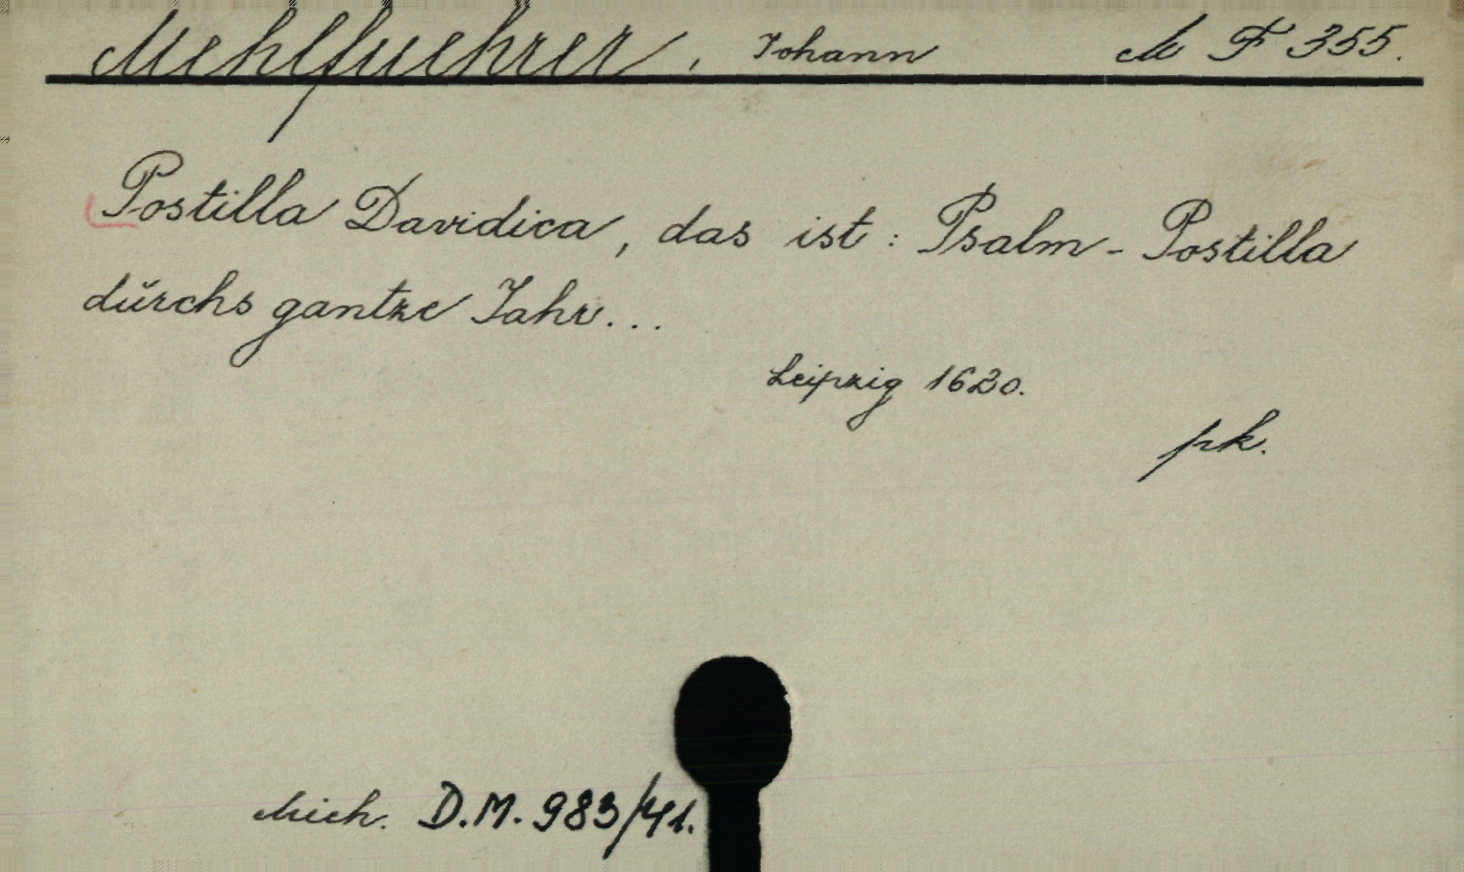 Mehlfuehrer, Johann M F 355.
Postilla Davidica, das ist: Psalm-Postilla
dŭrchs gantze Jahr...
Leipzig 1620.
pk.
Mich. D.M. 983/41.